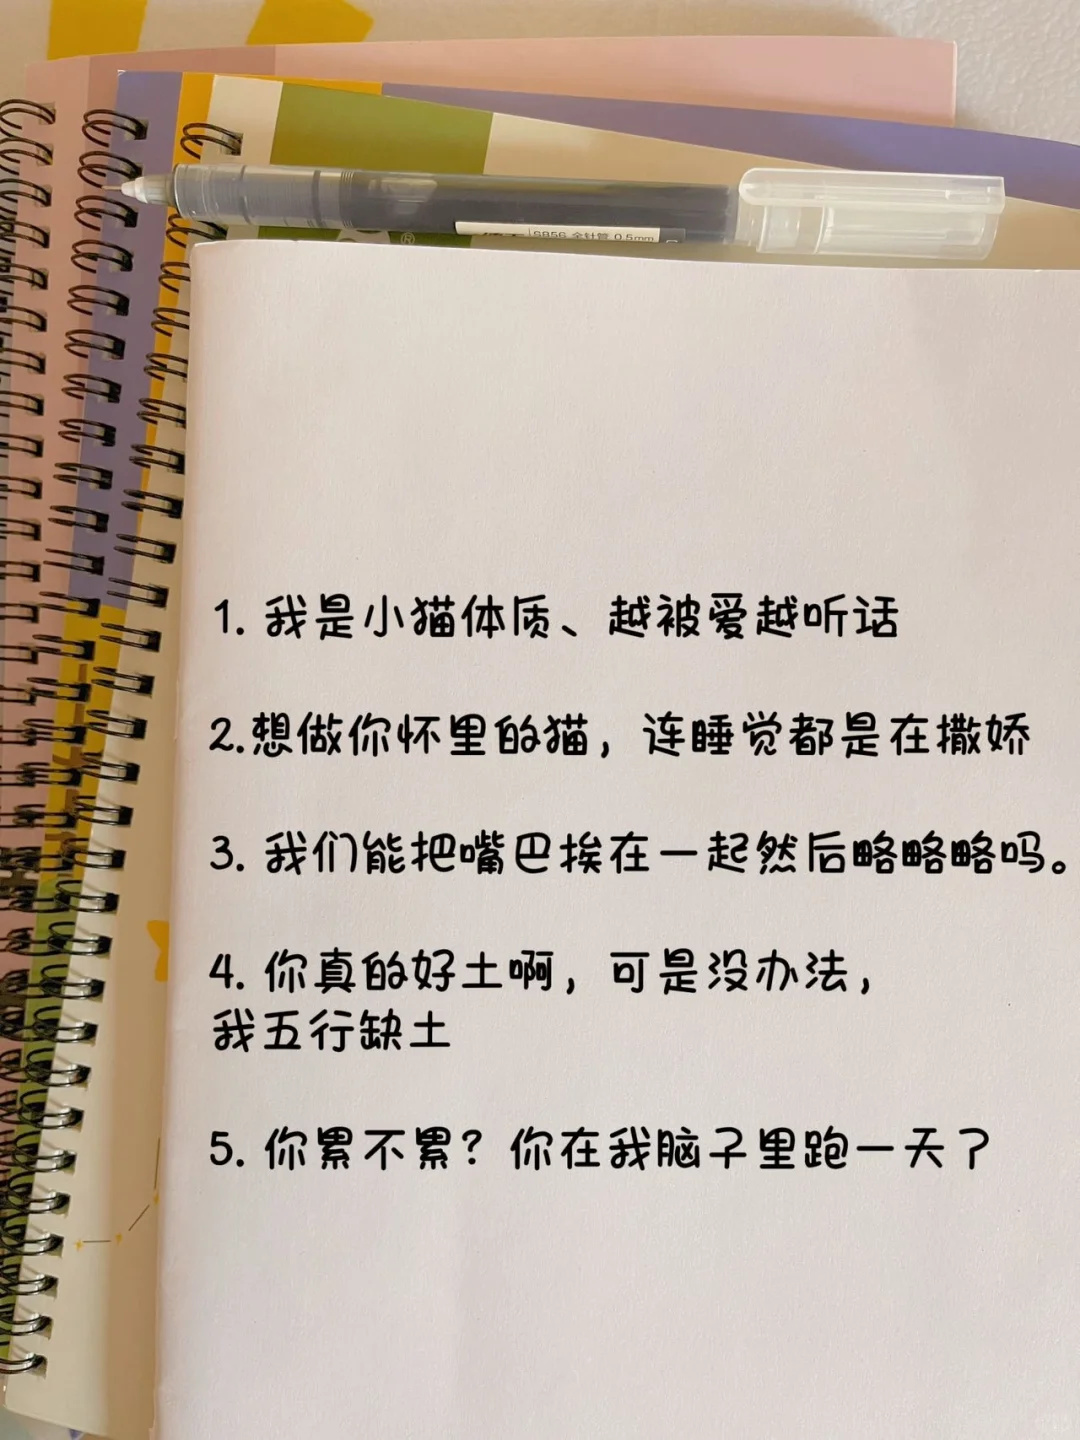 S856 全针管 0.5mm
®
1. 我是小猫体质、越被爱越听话
2.想做你怀里的猫，连睡觉都是在撒娇
3. 我们能把嘴巴挨在一起然后略略略吗。
4. 你真的好土啊，可是没办法，
我五行缺土
5. 你累不累？你在我脑子里跑一天了